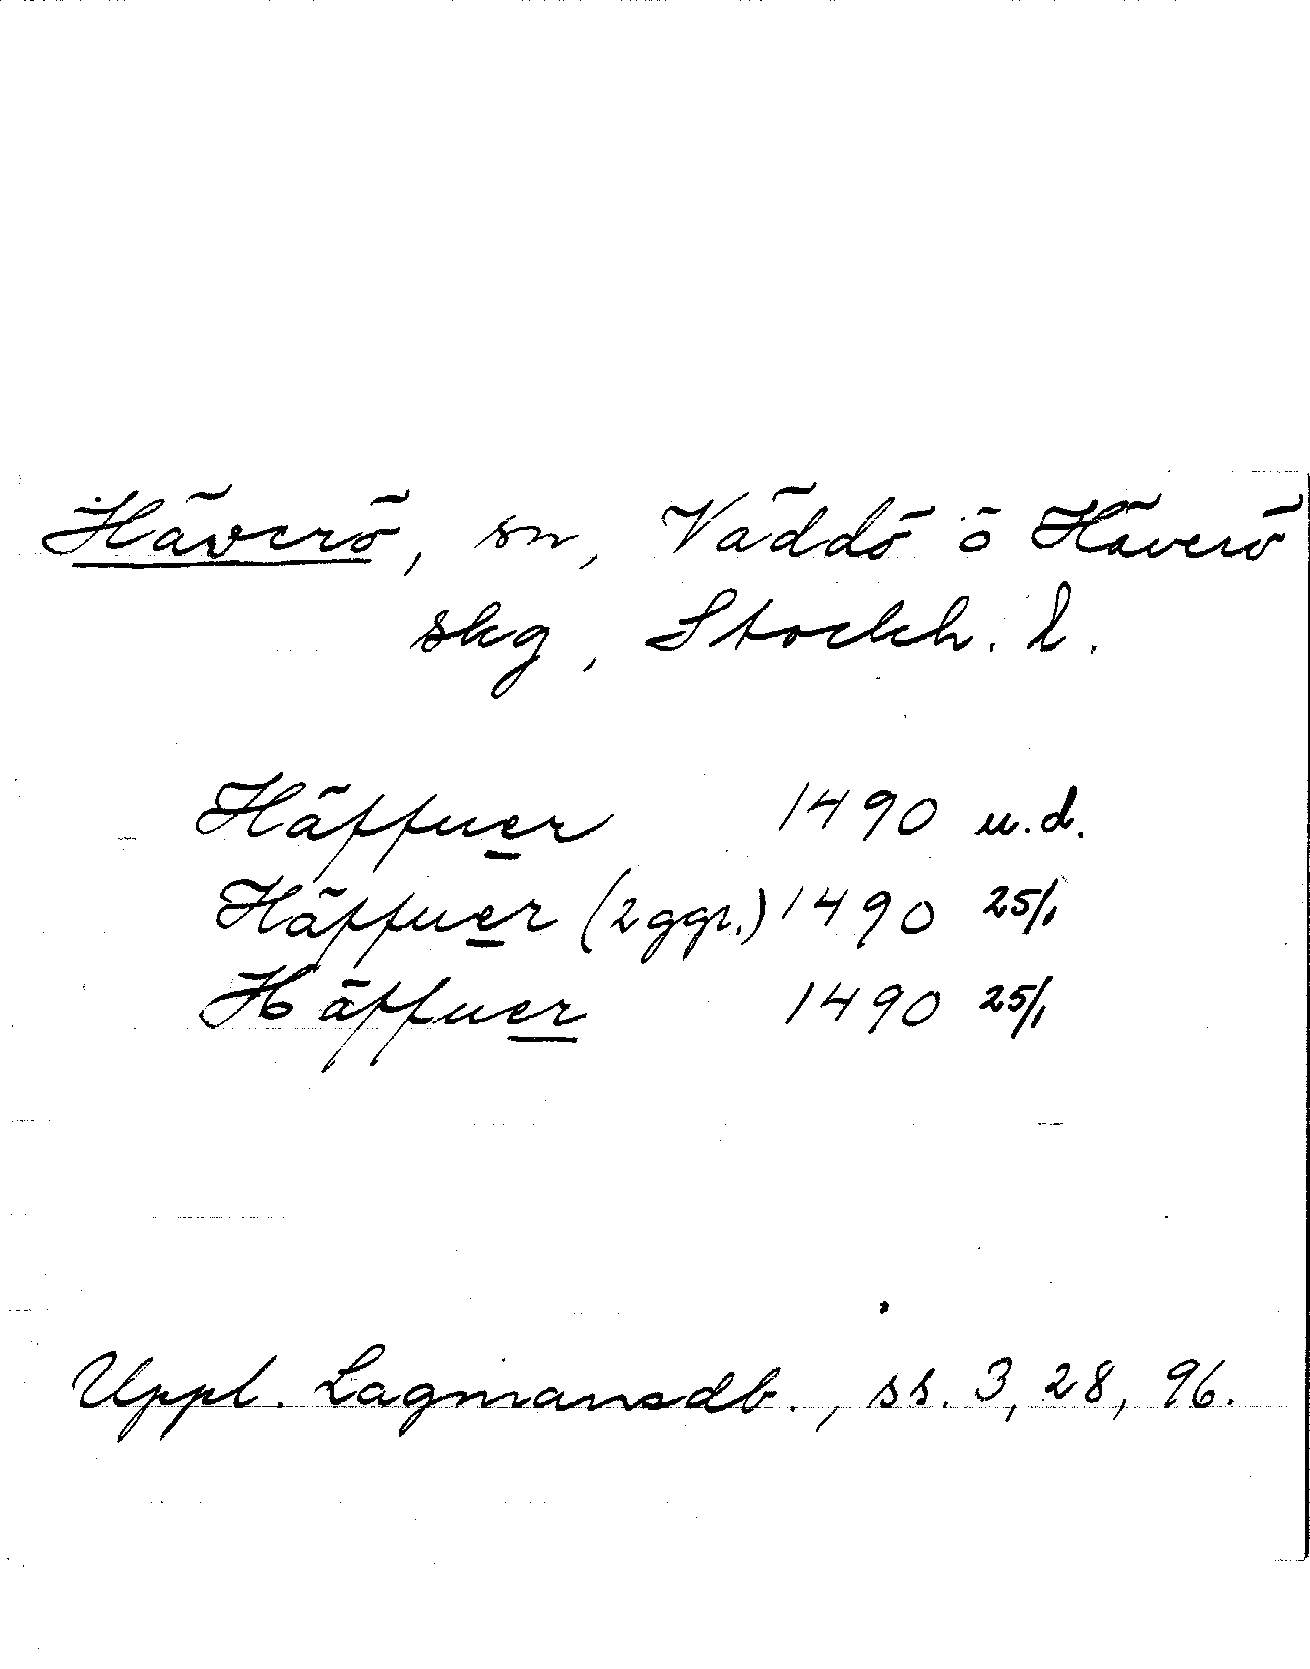 Häverö, sn, Väddö o Häverö
skg, Stockh. l.
Häffuer 1490 u.d.
Häffuer (2 ggr.) 1490 25/1
Häffuer 1490 25/1
Uppl. Lagmansdb., ss. 3, 28, 96.